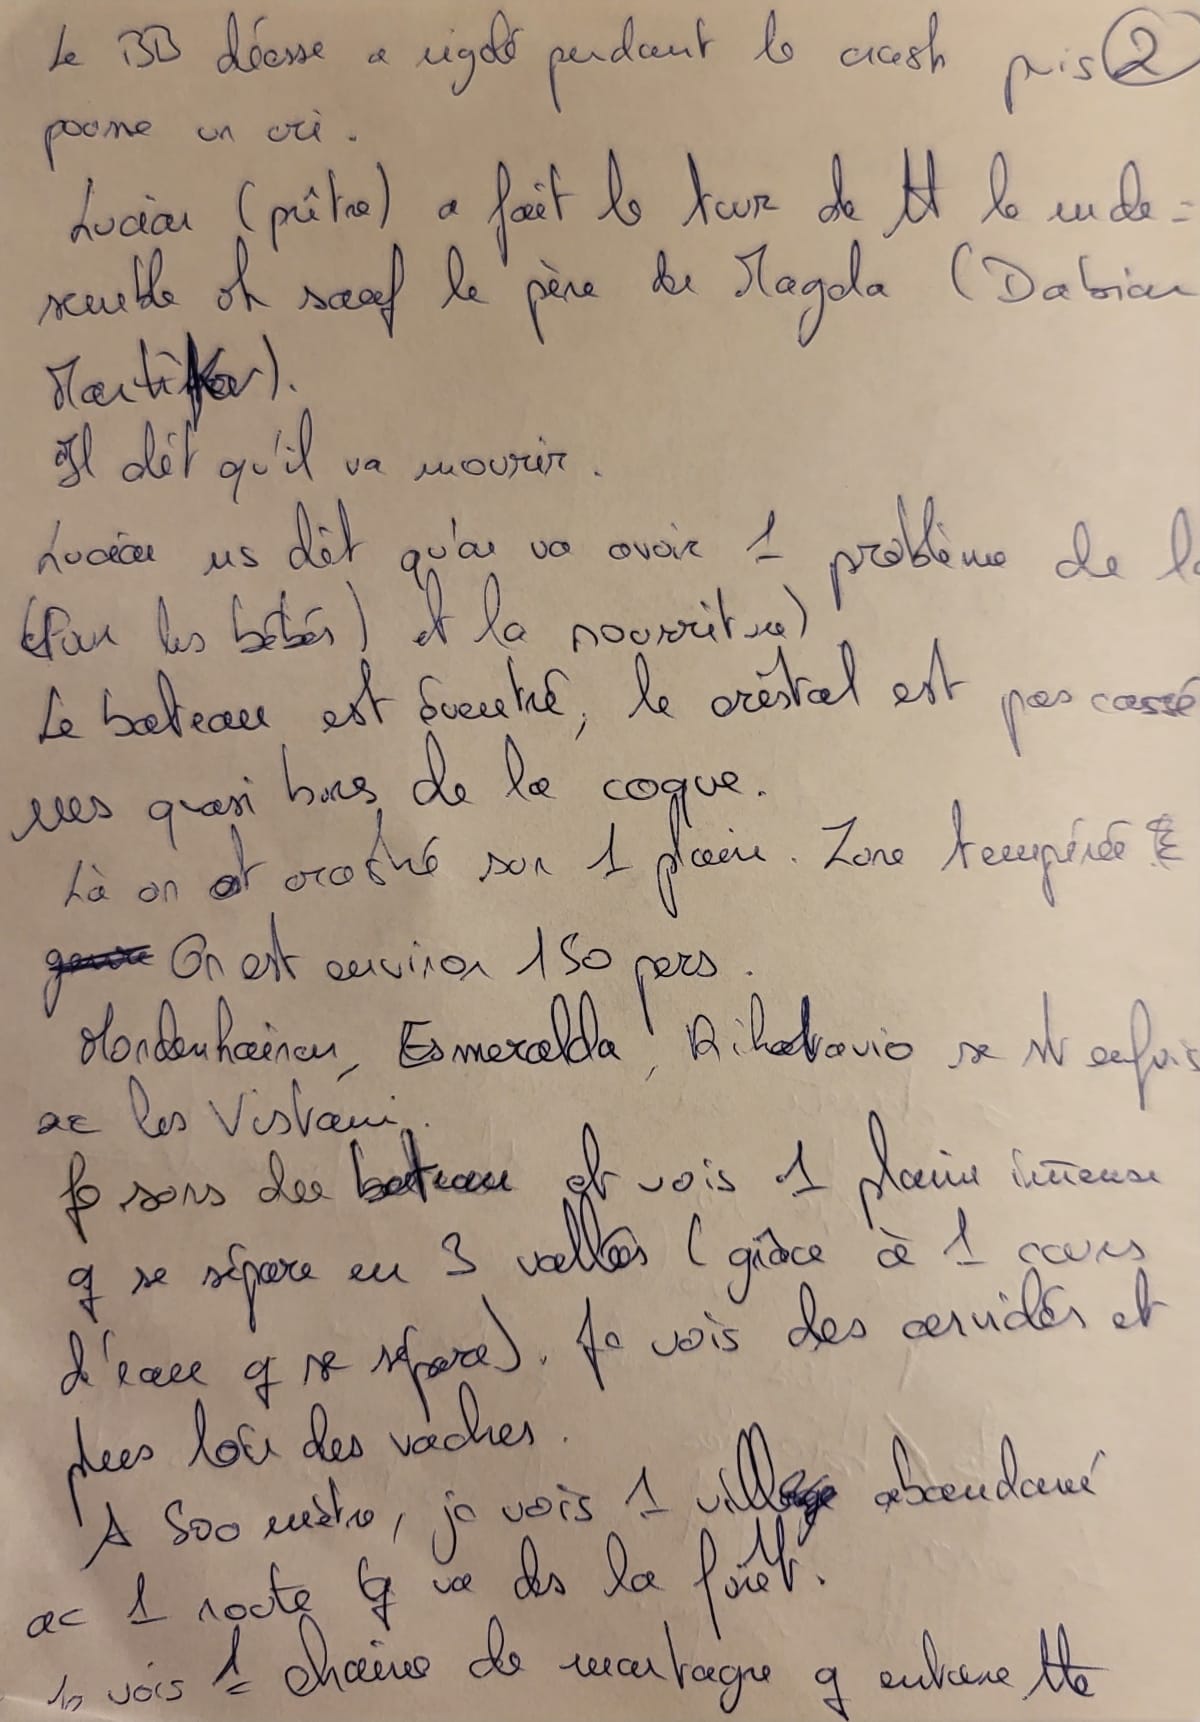 Le BB déesse a rigolé pendant le crash puis ②
pousse un cri.
Lucian (prêtre) a fait le tour de tt le mde =
semble ok sauf le père de Magda (Dabian
Martikov).
Il dit qu'il va mourir.
Lucian ns dit qu'on va avoir 1 problème de
(Pour les bébés) et la nourriture)
Le bateau est éventré, le cristal est pas cassé
mes quasi hors de la coque.
Là on est crashé sur 1 plaine. Zone tempérée
On est environ 150 pers.
Mordenhainen, Esmeralda, Rihatavio se st enfuis
ac les Vistani.
Je sors du bateau et vois 1 plaine immense
q se sépare en 3 vallées (grâce à 1 cours
d'eau q se sépare). Je vois des cervidés et
plus loin des vaches.
A 500 mètre, je vois 1 village abandonné
ac 1 route q va ds la forêt.
Je vois 1 chaîne de montagne q entoure tte